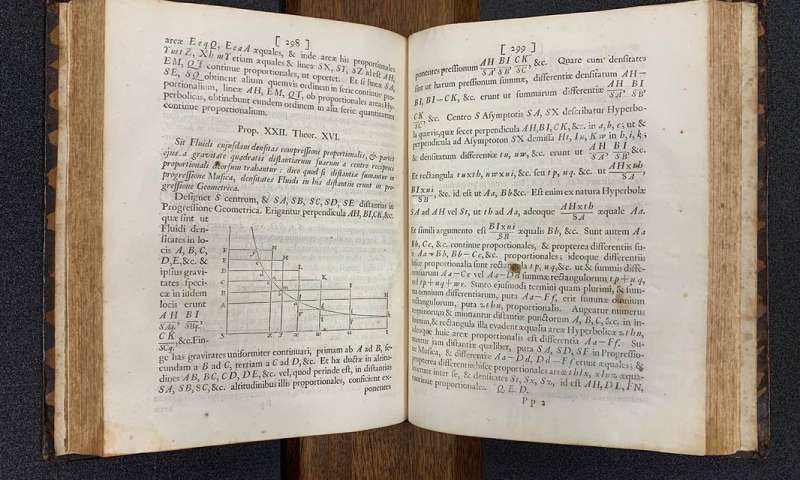 [ 298 ]
areæ E e q Q, E e a A æquales, & inde areæ his proportionales
Y m t Z, X b m Y etiam æquales & lineæ SX, ST, SZ id est AH,
EM, QT continue proportionales, ut oportet. Et si lineæ SA,
SE, SQ obtinent alium quemvis ordinem in serie continue pro-
portionalium, lineæ AH, EM, QT, ob proportionales areas Hy-
perbolicas, obtinebunt eundem ordinem in alia serie quantitatum
continue proportionalium.
Prop. XXII. Theor. XVI.
Sit Fluidi cujusdam densitas compressioni proportionalis, & partes
ejus a gravitate quadratis distantiarum suarum a centro reciproce
proportionali deorsum trahantur: dico quod si distantiæ sumantur in
progressione Musica, densitates Fluidi in his distantiis erunt in pro-
gressione Geometrica.
Designet S centrum, & SA, SB, SC, SD, SE distantias in
Progressione Geometrica. Erigantur perpendicula AH, BI, CK, &c.
quæ sint ut
Fluidi den-
sitates in lo-
cis A, B, C,
D, E, &c. &
ipsius gravi-
tates speci-
cæ in iisdem
locis erunt
AH BI
SAq, SBq,
CK
SCq, &c. Fin-
ge has gravitates uniformiter continuari, primam ab A ad B, se-
cundam a B ad C, tertiam a C ad D, &c. Et hæ ductæ in altitu-
dines AB, BC, CD, DE, &c. vel, quod perinde est, in distantias
SA, SB, SC, &c. altitudinibus illis proportionales, conficient ex-
ponentes
[ 299 ]
ponentes pressionum AH/SA, BI/SB, CK/SC, &c. Quare cum densitates
sint ut harum pressionum summæ, differentiæ densitatum AH−
BI, BI−CK, &c. erunt ut summarum differentiæ AH/SA, BI/SB,
CK/SC, &c. Centro S Asymptotis SA, SX describatur Hyperbo-
la quævis, quæ secet perpendicula AH, BI, CK, &c. in a, b, c; ut &
perpendicula ad Asymptoton SX demissa Ht, Iu, Kw in h, i, k;
& densitatum differentiæ tu, uw, &c. erunt ut AH/SA, BI/SB, &c.
Et rectangula tu×th, uw×ui, &c. seu tp, uq, &c. ut AH×th/SA,
BI×ui/SB, &c. id est ut Aa, Bb &c. Est enim ex natura Hyperbolæ
SA ad AH vel St, ut th ad Aa, adeoque AH×th/SA æquale Aa.
Et simili argumento est BI×ui/SB æqualis Bb, &c. Sunt autem Aa
Bb, Cc, &c. continue proportionales, & propterea differentiis su-
is Aa−Bb, Bb−Cc, &c. proportionales; ideoque differentiis
hisce proportionalia sunt rectangula tp, uq, &c. ut & summis diffe-
rentiarum Aa−Cc vel Aa−Dd summæ rectangulorum tp+uq,
vel tp+uq+wr. Sunto ejusmodi termini quam plurimi, & sum-
ma omnium differentiarum, puta Aa−Ff, erit summæ omnium
rectangulorum, puta zthn, proportionalis. Augeatur numerus
terminorum & minuantur distantiæ punctorum A, B, C, &c. in in-
finitum, & rectangula illa evadent æqualia areæ Hyperbolicæ zthn,
adeoque huic areæ proportionalis est differentia Aa−Ff. Su-
mantur jam distantiæ quælibet, puta SA, SD, SF in Progressio-
ne Musica, & differentiæ Aa−Dd, Dd−Ff erunt æquales; &
propterea differentiis hisce proportionales areæ thlx, xlnz æqua-
les erunt inter se, & densitates St, Sx, Sz, id est AH, DL, FN,
continue proportionales. Q. E. D.
Pp 2